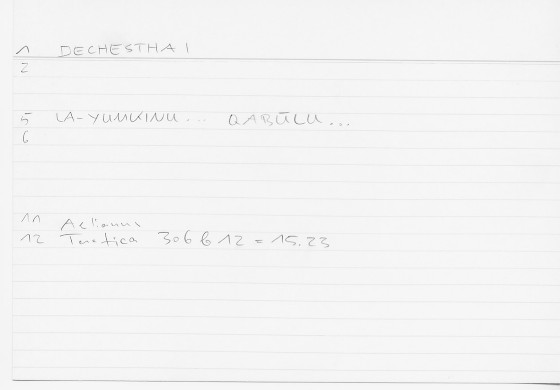 1 DECHESTHAI
2
5 LA-YUMKINU... QABŪLU...
6
11 Aelianus
12 Tactica 306 b 12 = 15.23